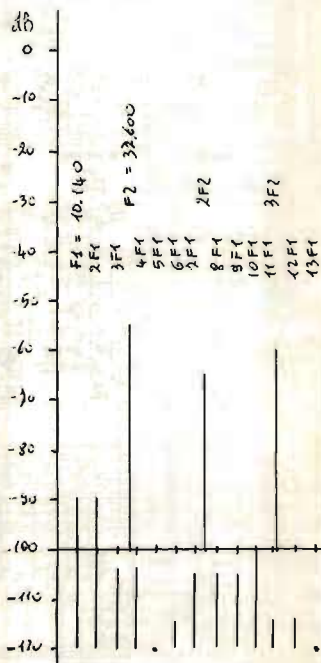 dB
0
-10
-20
-30
-40
-50
-60
-70
-80
-90
-100
-110
-120
F1 = 10.140
2F1
3F1
F2 = 37,600
4F1
5F1
6F1
7F1
2F2
8F1
9F1
10F1
11F1
3F2
12F1
13F1